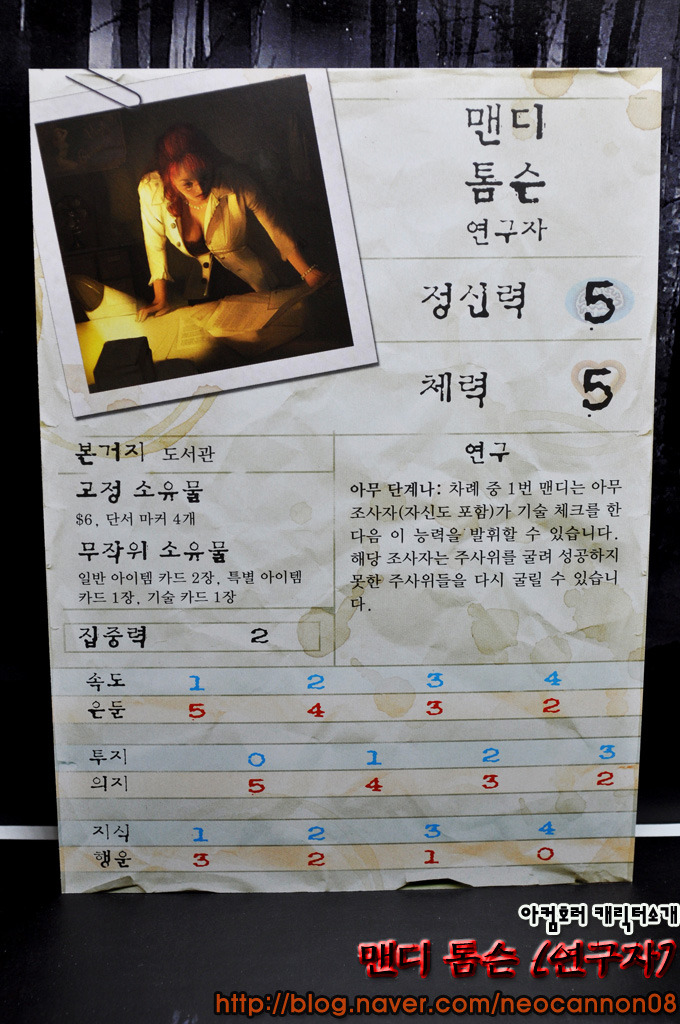 맨디
톰슨
연구자
정신력 5
체력 5
본거지 도서관
고정 소유물
$6, 단서 마커 4개
무작위 소유물
일반 아이템 카드 2장, 특별 아이템
카드 1장, 기술 카드 1장
집중력 2
연구
아무 단계나: 차례 중 1번 맨디는 아무
조사자(자신도 포함)가 기술 체크를 한
다음 이 능력을 발휘할 수 있습니다.
해당 조사자는 주사위를 굴려 성공하지
못한 주사위들을 다시 굴릴 수 있습니
다.
속도 1 2 3 4
은둔 5 4 3 2
투지 0 1 2 3
의지 5 4 3 2
지식 1 2 3 4
행운 3 2 1 0
아컴호러 캐릭터소개
맨디 톰슨 (연구자)
http://blog.naver.com/neocannon08